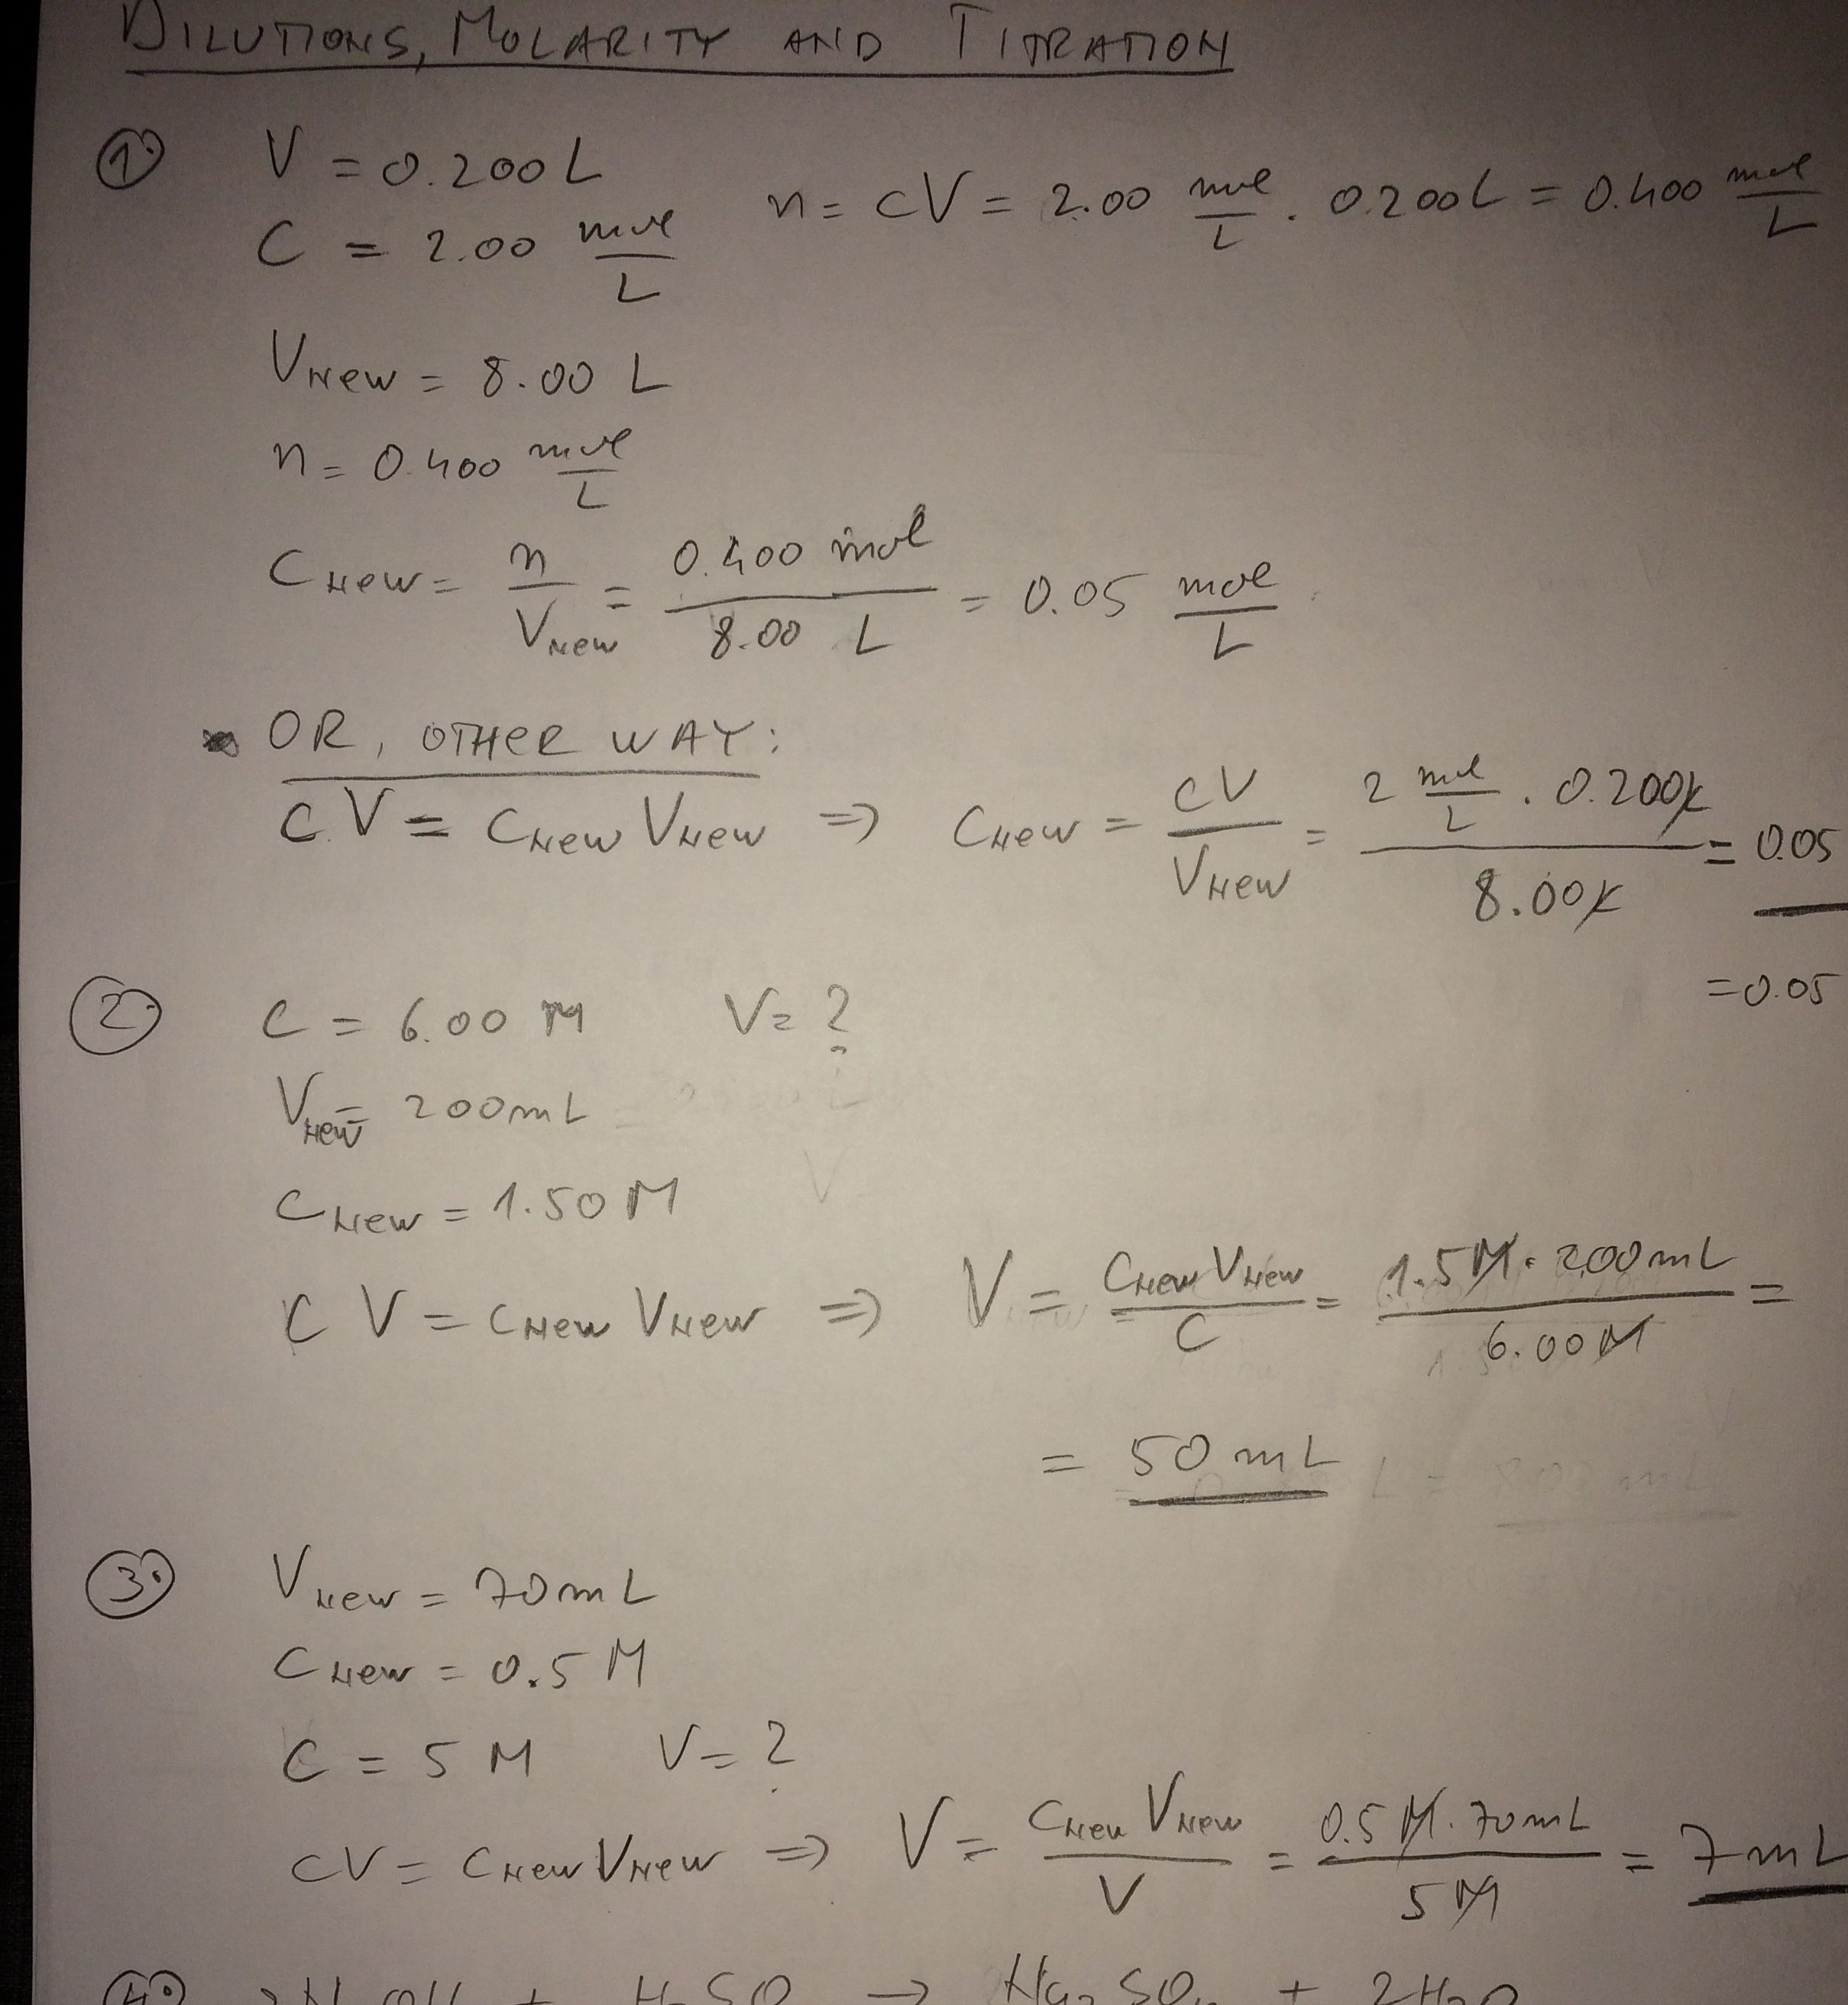 DILUTIONS, MOLARITY AND TITRATION
1. V = 0.200 L
n = CV = 2.00 mol/L · 0.200L = 0.400 mol/L
C = 2.00 mol/L
VNEW = 8.00 L
n = 0.400 mol/L
CNEW = n/VNEW = 0.400 mol/8.00 L = 0.05 mol/L
OR, OTHER WAY:
CV = CNEW VNEW => CNEW = CV/VNEW = 2 mol/L · 0.200L/8.00L = 0.05
= 0.05
2. C = 6.00 M V = ?
VNEW = 200mL
CNEW = 1.50 M
CV = CNEW VNEW => V = CNEW VNEW/C = 1.5M · 200mL/6.00M =
= 50 mL
3. VNEW = 70mL
CNEW = 0.5 M
C = 5 M V = ?
CV = CNEW VNEW => V = CNEW VNEW/V = 0.5 M · 70mL/5M = 7mL
4. 2NaOH + H2SO → Na2SO4 + 2H2O